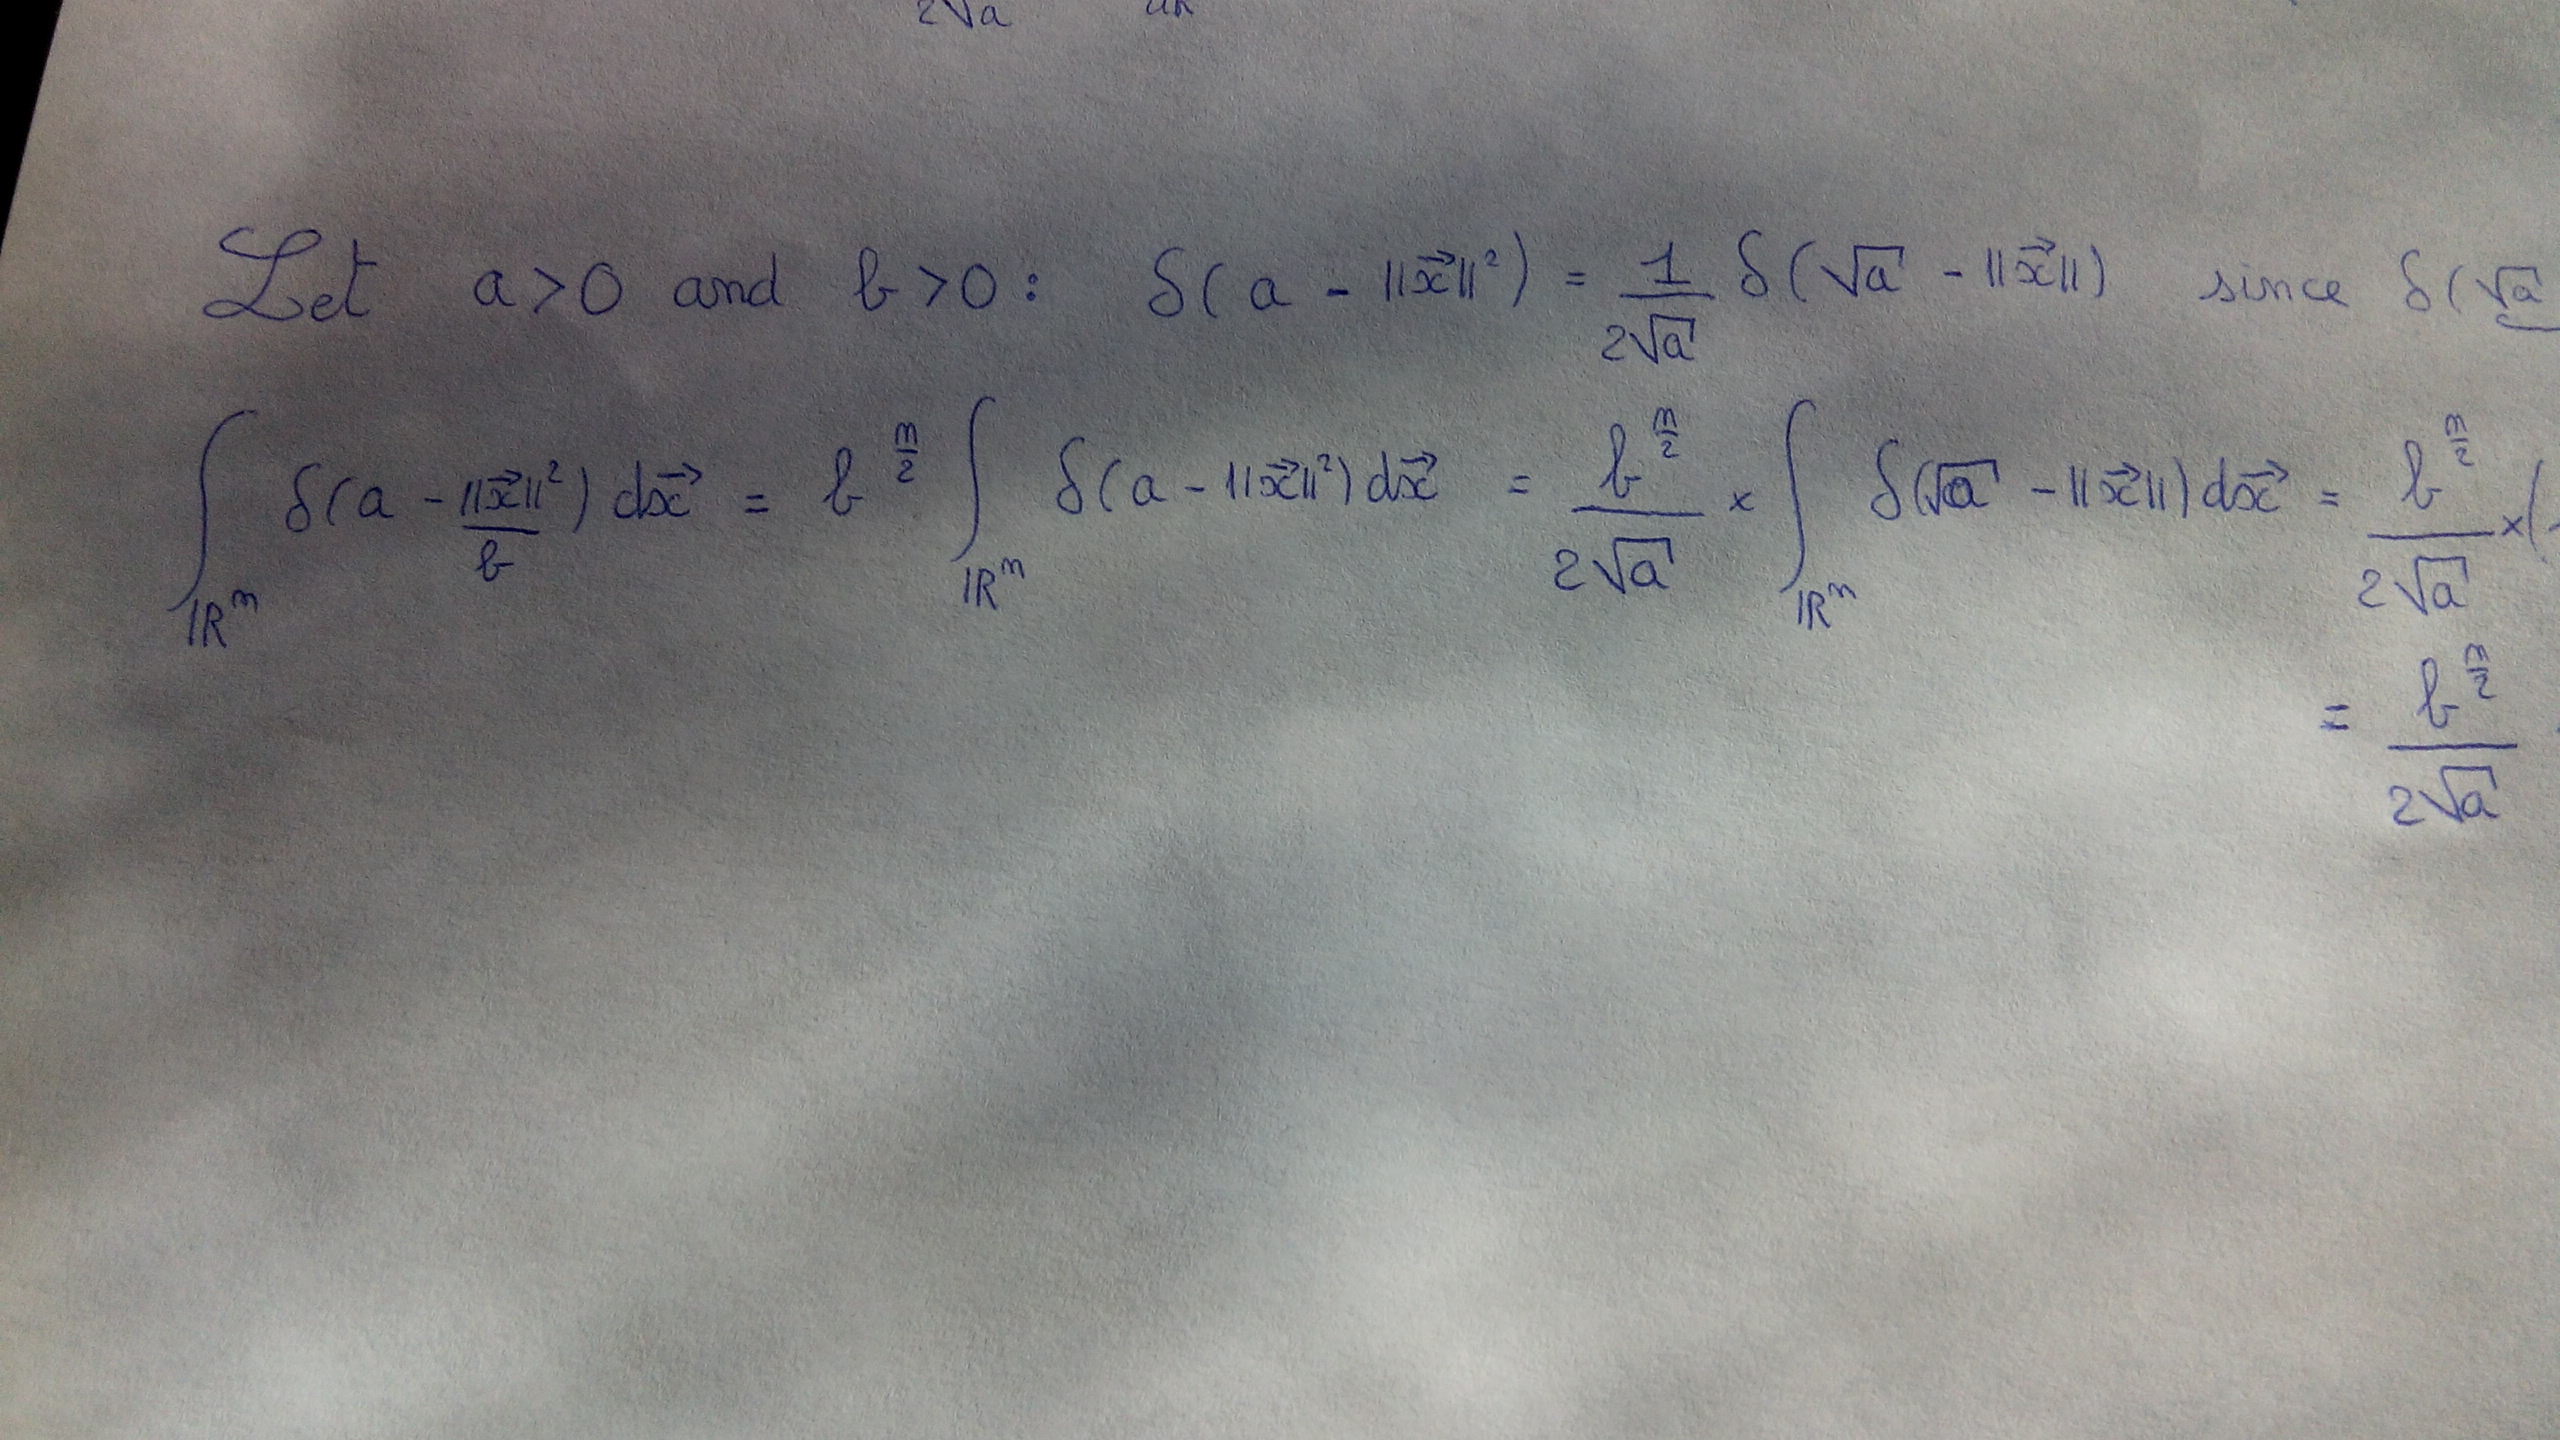 2√a
Let a>0 and b>0: δ(a - ||x⃗||²) = 1/(2√a) δ(√a - ||x⃗||) since δ(√a
∫_{ℝⁿ} δ(a - ||x⃗||²/b) dx⃗ = b^{n/2} ∫_{ℝⁿ} δ(a - ||x⃗||²) dx⃗ = b^{n/2}/(2√a) × ∫_{ℝⁿ} δ(√a - ||x⃗||) dx⃗ = b^{n/2}/(2√a) × (
= b^{n/2}/(2√a)